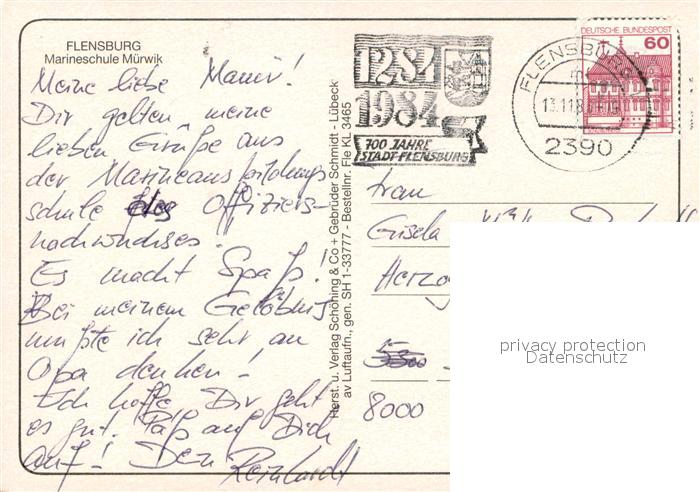 FLENSBURG
Marineschule Mürwik
Meine liebe Mami!
Dir gelten meine
lieben Grüße aus
der Marineausbildungs
schule des Offiziers-
nachwuchses.
Es macht Spaß!
Bei meinem Gelöbnis
mußte ich sehr an
Opa denken!
Ich hoffe Dir geht
es gut. Paß auf Dich
auf! Dein Reinhardt
Herst. u. Verlag Schöning & Co + Gebrüder Schmidt - Lübeck
av Luftaufn., gen. SH 1-33777 - Bestellnr. Fle KL 3465
1284
1984
700 JAHRE
STADT FLENSBURG
FLENSBURG
13.11.8
2390
DEUTSCHE BUNDESPOST
60
Frau
Gisela
Herzo
5300
8000
privacy protection
Datenschutz